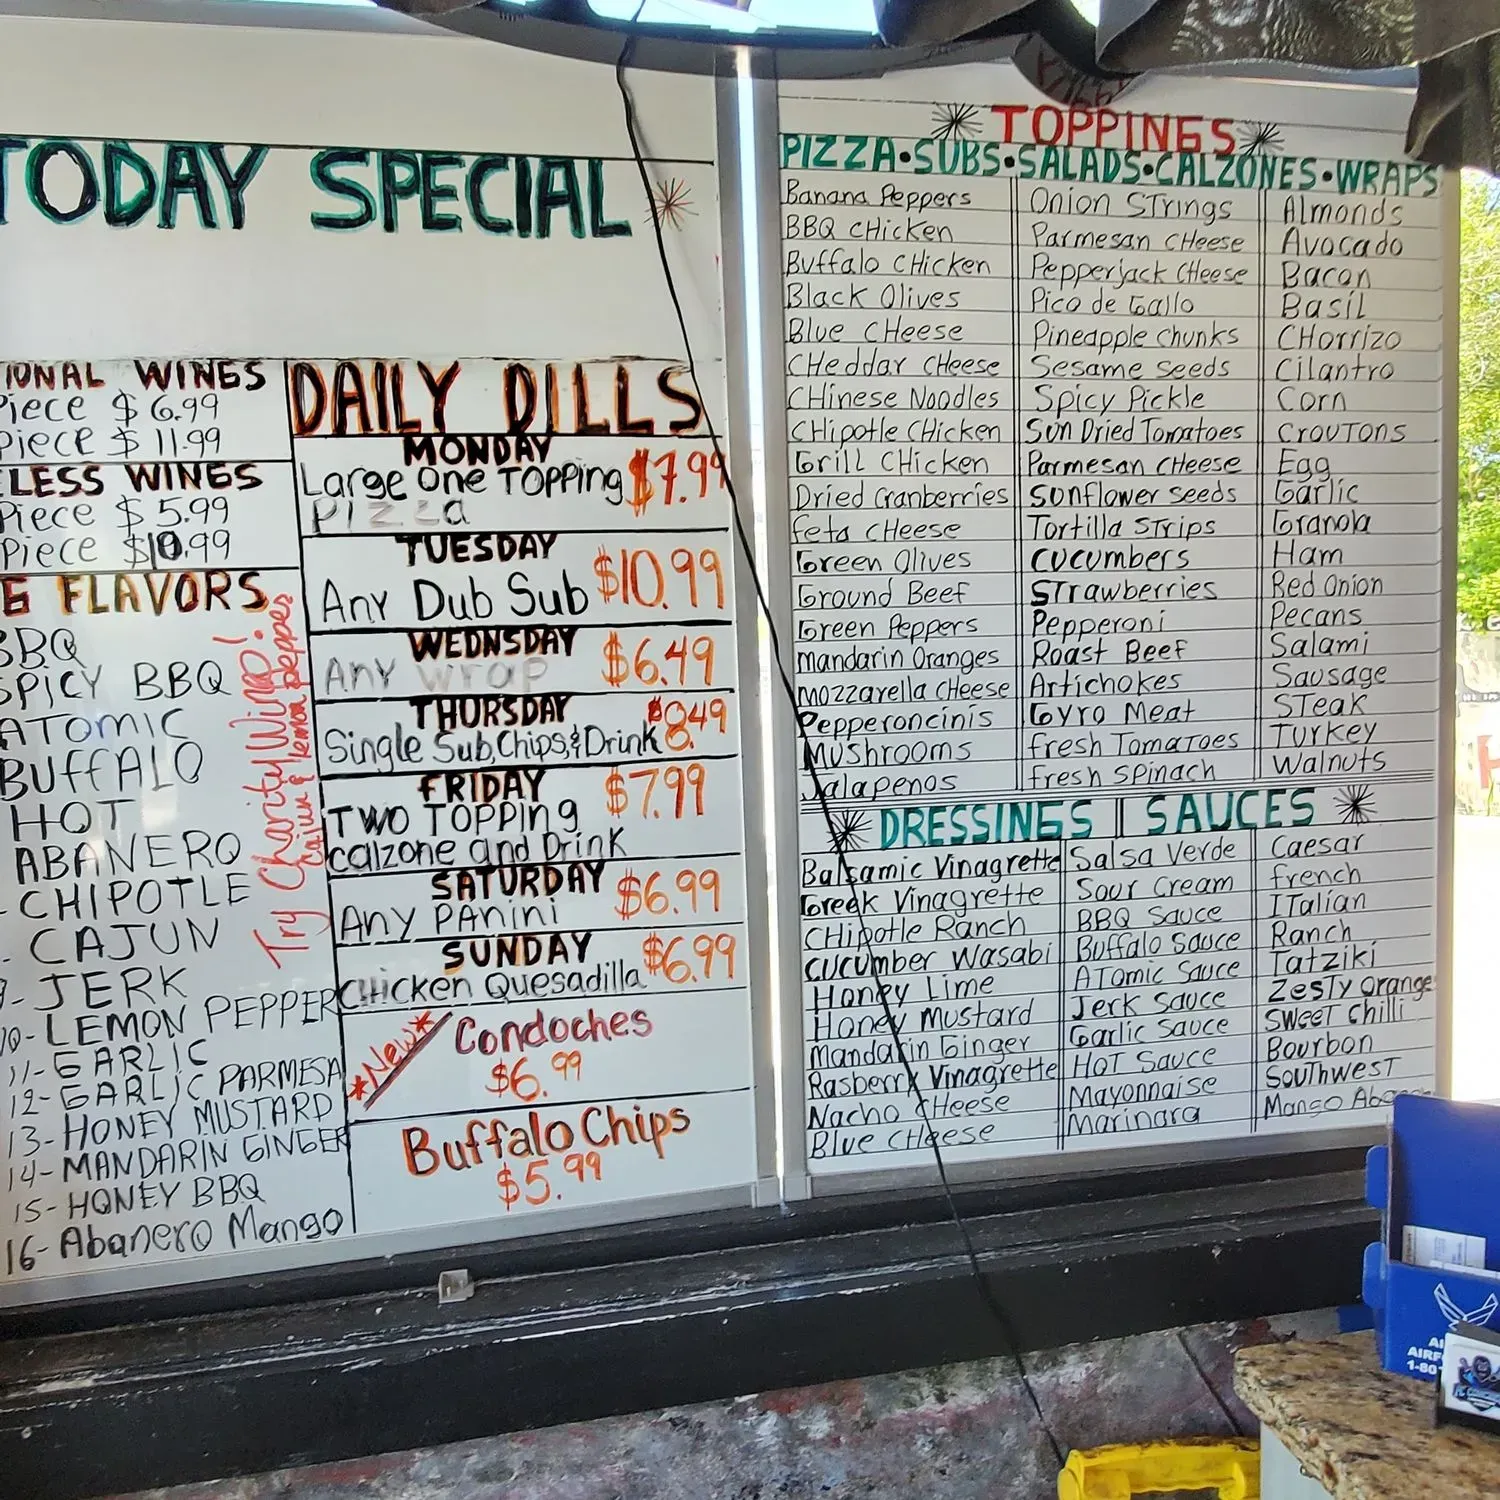 TODAY SPECIAL
WINGS
Piece $6.99
Piece $11.99
WINGS
Piece $5.99
Piece $10.99
FLAVORS
BBQ
SPICY BBQ
ATOMIC
BUFFALO
HOT
ABANERO
CHIPOTLE
CAJUN
JERK
10- LEMON PEPPER
11- GARLIC
12- GARLIC PARMESA
13- HONEY MUSTARD
14- MANDARIN GINGER
15- HONEY BBQ
16- Abanero Mango
Try Charity Wing!
Cajun & lemon pepper
DAILY DILLS
MONDAY
Large One Topping $7.99
Pizza
TUESDAY
Any Dub Sub $10.99
WEDNSDAY
Any Wrap $6.49
THURSDAY
Single Sub, Chips, & Drink $8.49
FRIDAY
TWO TOPPING $7.99
calzone and Drink
SATURDAY
Any PAnini $6.99
SUNDAY
Chicken Quesadilla $6.99
*New* Condoches
$6.99
Buffalo Chips
$5.99
TOPPINGS
PIZZA•SUBS•SALADS•CALZONES•WRAPS
Banana Peppers
BBQ CHicken
Buffalo CHicken
Black Olives
Blue CHeese
CHeddar CHeese
CHinese Noodles
CHipotle CHicken
Grill CHicken
Dried Cranberries
feta CHeese
Green Olives
Ground Beef
Green Peppers
Mandarin Oranges
Mozzarella CHeese
Pepperoncinis
Mushrooms
Jalapenos
Onion Strings
Parmesan CHeese
Pepperjack CHeese
Pico de Gallo
Pineapple Chunks
Sesame Seeds
Spicy Pickle
Sun Dried Tomatoes
Parmesan CHeese
Sunflower Seeds
Tortilla Strips
Cucumbers
Strawberries
Pepperoni
Roast Beef
Artichokes
Gyro Meat
fresh Tomatoes
fresh Spinach
Almonds
Avocado
Bacon
Basil
CHorrizo
Cilantro
Corn
Croutons
Egg
Garlic
Granola
Ham
Red Onion
Pecans
Salami
Sausage
Steak
Turkey
Walnuts
DRESSINGS || SAUCES
Balsamic Vinagrette
Greek Vinagrette
CHipotle Ranch
Cucumber Wasabi
Honey Lime
Honey Mustard
Mandarin Ginger
Rasberry Vinagrette
Nacho CHeese
Blue CHeese
Salsa Verde
Sour Cream
BBQ Sauce
Buffalo Sauce
Atomic Sauce
Jerk Sauce
Garlic Sauce
HOT Sauce
Mayonnaise
Marinara
Caesar
french
ITalian
Ranch
Tatziki
Zesty Orange
Sweet Chilli
Bourbon
Southwest
Mango